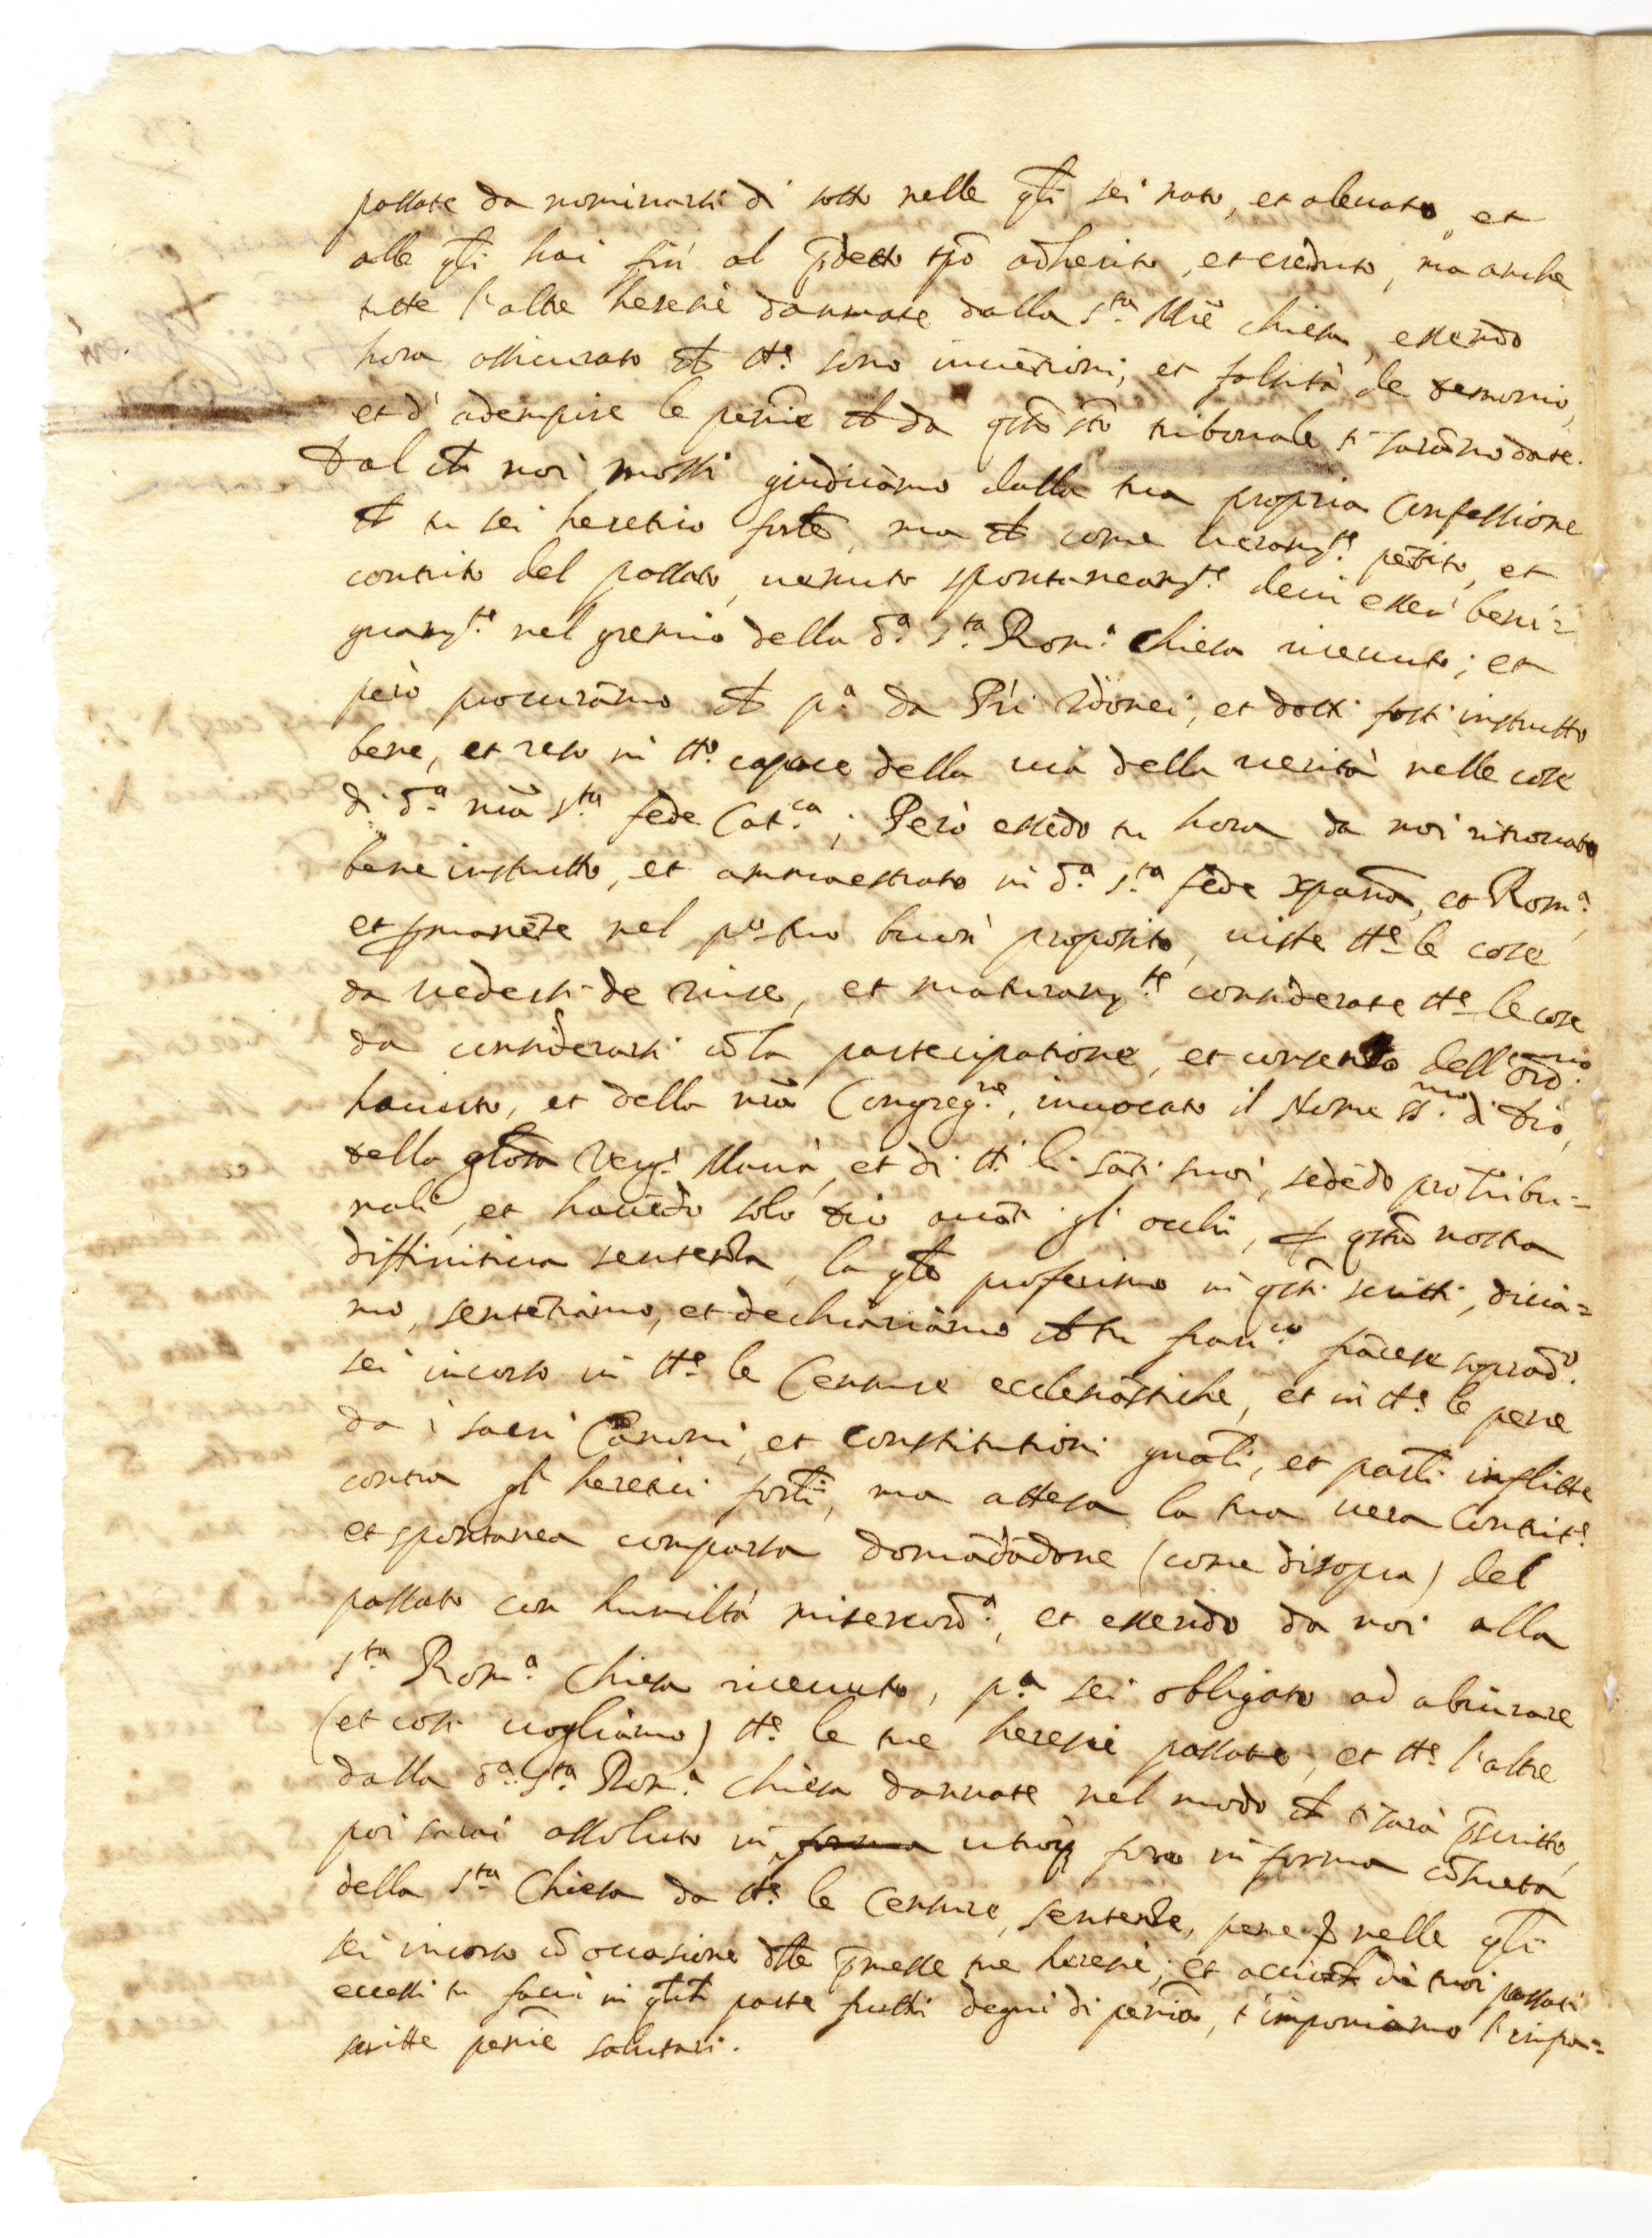 passate da nominarsi di sotto nelle qli sei nato, et alevato, et
alle qli hai sin' al pdetto tpo adherito, et creduto, ma anche
tutte l'altre heresie dannate dalla sta. Mre chiesa, essendo
hora assicurato ch tte. sono invētioni, et falsità de demonio,
et d'adempire le penie ch da qsto sto tribunale ti sarāno date.
Dal ch noi mossi giudicāmo dalla tua propria Confessione
ch tu sei heretico forte, ma ch come veramte. pētito, et
contrito del passato, venuto spontaneamte. devi esser' beni=
gnamte. nel gremio della da. sta. Roma. Chiesa ricevuto; et
però procurāmo ch pa. da Pri idonei, et dotti fosti instrutto
bene, et reso in tto. capace della via della verità nelle cose
di da. nra sta. fede Catca.; Però essēdo tu hora da noi ritrovato
bene instrutto, et ammaestrato in da. sta. fede xpana, et Roma.
et pmanēte nel po. tuo buon' proposito, viste tte. le cose
da vedersi de iure, et maturamte. considerate tte. le cose
da considerarsi cō la participatione, et consenso dell' Ordrio.
havuto, et della nra Congregne., invocato il Nome ssmo. di Dio,
della glosa Verge. Maria, et di tti. li sāti suoi, sedēdo pro Tribu=
nali, et havēdo solo Dio avāti gl'occhi, p qsta nostra
diffinitiva sentenza, la qle proferimo in qsti scritti, dicia=
mo, sentētiamo, et dechiariāmo ch tu Franco. frācese soprado.
sei incorso in tte. le Censure ecclesiastiche, et in tte. le pene
da i sacri Canoni, et constitutioni gnali, et parti inflitte
contra gl'heretici forti, ma attesa la tua vera Contritne.
et spontanea comparsa domādādone (come disopra) del
passato con humiltà misericorda., et essendo da noi alla
sta. Roma. Chiesa ricevuto, pa. sei obligato ad abiurare
(et cosi vogliamo) tte. le tue heresie passate, et tte. l'altre
dalla da. sta. Roma. Chiesa dannate nel modo ch ti sarà pscritto,
poi sarai assoluto in forma utroq foro in forma cōsueta
della sta. Chiesa da tte. le Censure, sentenze, pene nelle qli
sei incorso cō occasione dlle pmesse tue heresie; et acciò ch de tuoi passati
eccessi tu facci in qlch parte frutti degni di penia, t'imponiamo l'infra=
scritte penie salutari.